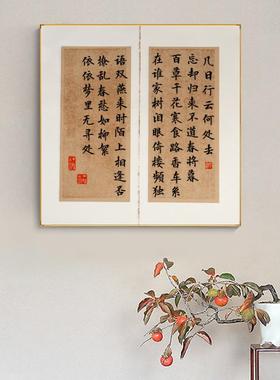 几日行云何处去
忘却归来不道春将暮
百草千花寒食路香车系
在谁家树泪眼倚楼频独
语双燕来时陌上相逢否
撩乱春愁如柳絮
依依梦里无寻处